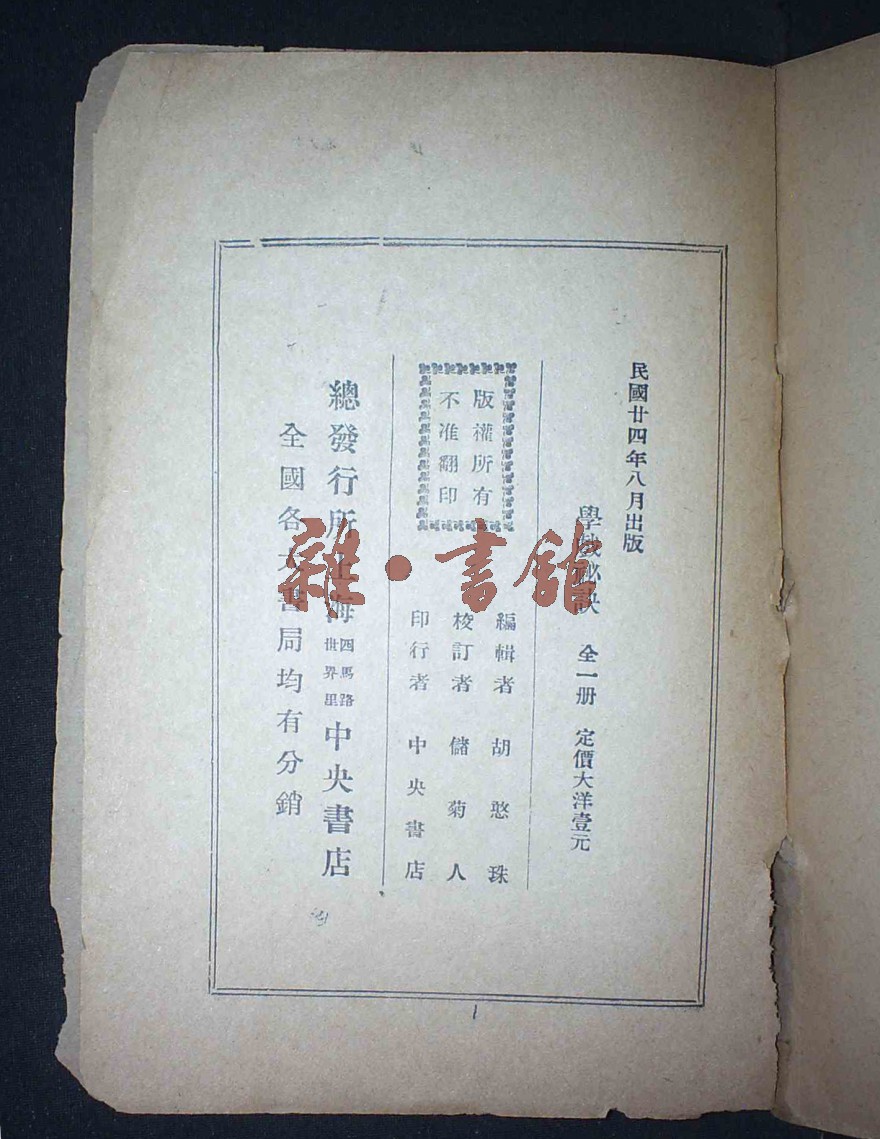 民國廿四年八月出版
學戲祕訣 全一册 定價大洋壹元
版權所有
不准翻印
編輯者 胡憨珠
校訂者 儲菊人
印行者 中央書店
總發行所上海四馬路世界里中央書店
全國各大書局均有分銷
雜·書館